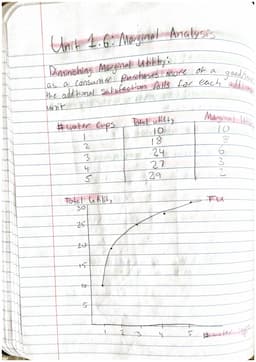 Unit 1.6: Marginal Analysis
Diminishing Marginal Utility:
as a consumer purchases more of a good/
the additional satisfaction falls for each
unit
# water Cups Total Utility Marginal
1 10 10
2 18 8
3 24 6
4 27 3
5 29 2
Total Utility
30
25
20
15
10
5
TU
1 2 3 4 5 # water